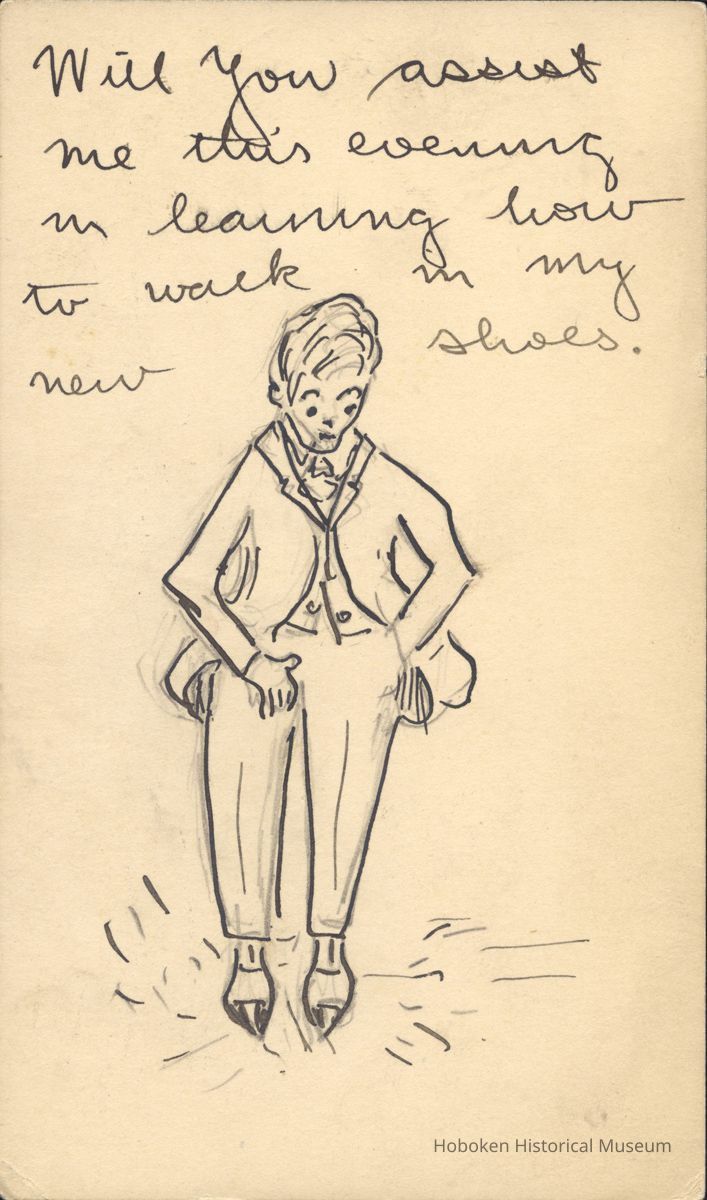 Will You assist
me this evening
in learning how
to walk in my
new shoes.
Hoboken Historical Museum